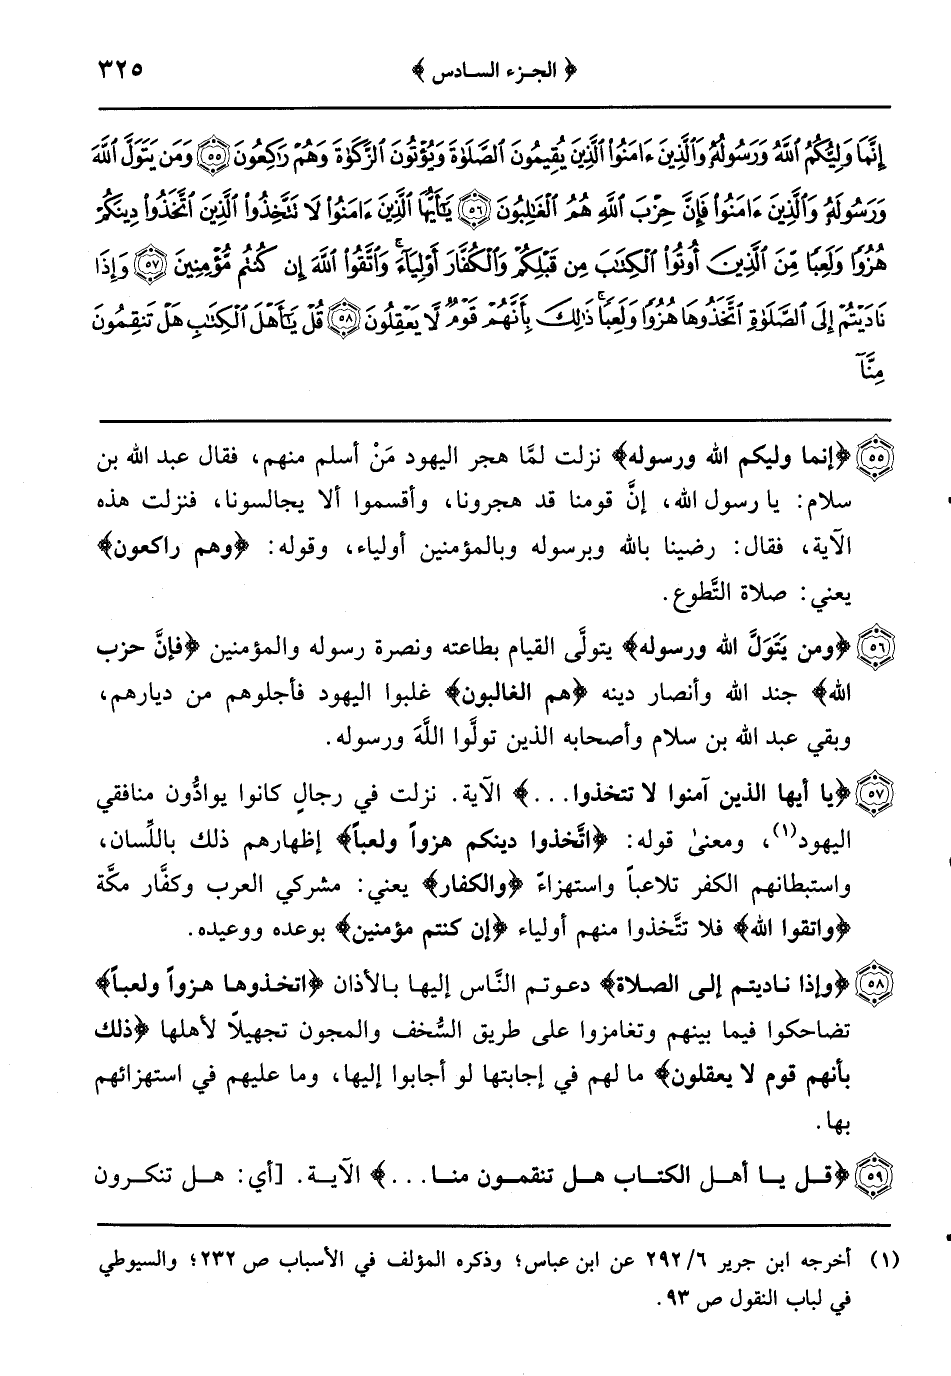 ﴿ الجزء السادس ﴾ ٣٢٥
إِنَّمَا وَلِيُّكُمُ ٱللَّهُ وَرَسُولُهُۥ وَٱلَّذِينَ ءَامَنُوا۟ ٱلَّذِينَ يُقِيمُونَ ٱلصَّلَوٰةَ وَيُؤْتُونَ ٱلزَّكَوٰةَ وَهُمْ رَٰكِعُونَ ٥٥ وَمَن يَتَوَلَّ ٱللَّهَ
وَرَسُولَهُۥ وَٱلَّذِينَ ءَامَنُوا۟ فَإِنَّ حِزْبَ ٱللَّهِ هُمُ ٱلْغَٰلِبُونَ ٥٦ يَٰٓأَيُّهَا ٱلَّذِينَ ءَامَنُوا۟ لَا تَتَّخِذُوا۟ ٱلَّذِينَ ٱتَّخَذُوا۟ دِينَكُمْ
هُزُوًا وَلَعِبًا مِّنَ ٱلَّذِينَ أُوتُوا۟ ٱلْكِتَٰبَ مِن قَبْلِكُمْ وَٱلْكُفَّارَ أَوْلِيَآءَ ۚ وَٱتَّقُوا۟ ٱللَّهَ إِن كُنتُم مُّؤْمِنِينَ ٥٧ وَإِذَا
نَادَيْتُمْ إِلَى ٱلصَّلَوٰةِ ٱتَّخَذُوهَا هُزُوًا وَلَعِبًا ۚ ذَٰلِكَ بِأَنَّهُمْ قَوْمٌ لَّا يَعْقِلُونَ ٥٨ قُلْ يَٰٓأَهْلَ ٱلْكِتَٰبِ هَلْ تَنقِمُونَ
مِنَّآ
٥٥ ﴿إنما وليكم الله ورسوله﴾ نزلت لمَّا هجر اليهود مَنْ أسلم منهم، فقال عبد الله بن
سلام: يا رسول الله، إنَّ قومنا قد هجرونا، وأقسموا ألا يجالسونا، فنزلت هذه
الآية، فقال: رضينا بالله وبرسوله وبالمؤمنين أولياء، وقوله: ﴿وهم راكعون﴾
يعني: صلاة التَّطوع.
٥٦ ﴿ومن يَتَوَلَّ الله ورسوله﴾ يتولَّى القيام بطاعته ونصرة رسوله والمؤمنين ﴿فإنَّ حزب
الله﴾ جند الله وأنصار دينه ﴿هم الغالبون﴾ غلبوا اليهود فأجلوهم من ديارهم،
وبقي عبد الله بن سلام وأصحابه الذين تولَّوا اللَّهَ ورسوله.
٥٧ ﴿يا أيها الذين آمنوا لا تتخذوا...﴾ الآية. نزلت في رجالٍ كانوا يوادُّون منافقي
اليهود(١)، ومعنىٰ قوله: ﴿اتَّخذوا دينكم هزواً ولعباً﴾ إظهارهم ذلك باللِّسان،
واستبطانهم الكفر تلاعباً واستهزاءً ﴿والكفار﴾ يعني: مشركي العرب وكفَّار مكَّة
﴿واتقوا الله﴾ فلا تتَّخذوا منهم أولياء ﴿إن كنتم مؤمنين﴾ بوعده ووعيده.
٥٨ ﴿وإذا ناديتم إلى الصلاة﴾ دعوتم النَّاس إليها بالأذان ﴿اتخذوها هزواً ولعباً﴾
تضاحكوا فيما بينهم وتغامزوا على طريق السُّخف والمجون تجهيلاً لأهلها ﴿ذلك
بأنهم قوم لا يعقلون﴾ ما لهم في إجابتها لو أجابوا إليها، وما عليهم في استهزائهم
بها.
٥٩ ﴿قل يا أهل الكتاب هل تنقمون منا...﴾ الآية. [أي: هل تنكرون
(١) أخرجه ابن جرير ٢٩٢/٦ عن ابن عباس؛ وذكره المؤلف في الأسباب ص ٢٣٢؛ والسيوطي
في لباب النقول ص ٩٣.